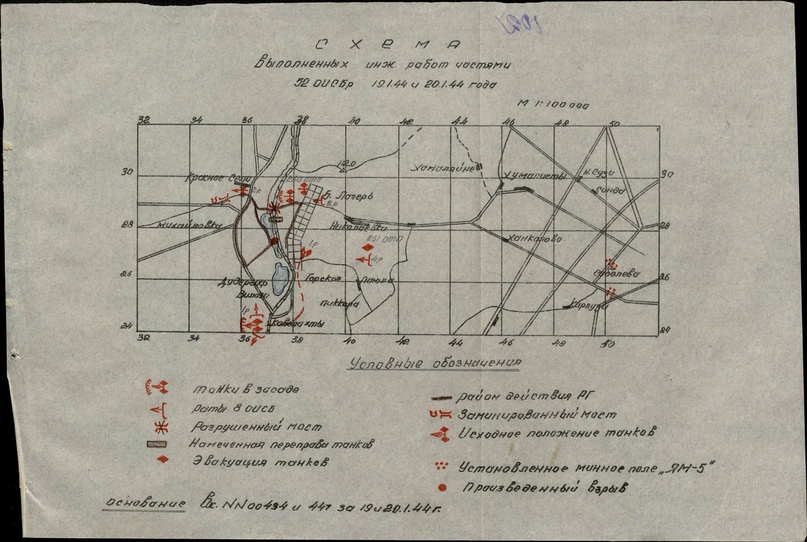 СХЕМА
Выполненных инж. работ частями
52 ОИСБр 19.1.44 и 20.1.44 года
М 1:100000
32 34 36 38 40 42 44 46 48 50
30 Красное Село Б. Лагерь Хамаляйне Хумаристы Н. Сузи 30
Синда
28 Михайловка Николаевка 28
261 ОТП
Ханкалово
26 Дудергоф Горская 26
Вилози Пиккора
Карвала
24 Кавелахты 24
32 34 36 38 40 42 44 46 48 50
Условные обозначения
танки в засаде
Роты 8 ОИСБ
Разрушенный мост
Намеченная переправа танков
Эвакуация танков
район действия РГ
Заминированный мост
Исходное положение танков
Установленное минное поле „ЯМ-5"
Произведенный взрыв
основание Вх. NN 00434 и 447 за 19 и 20.1.44 г.